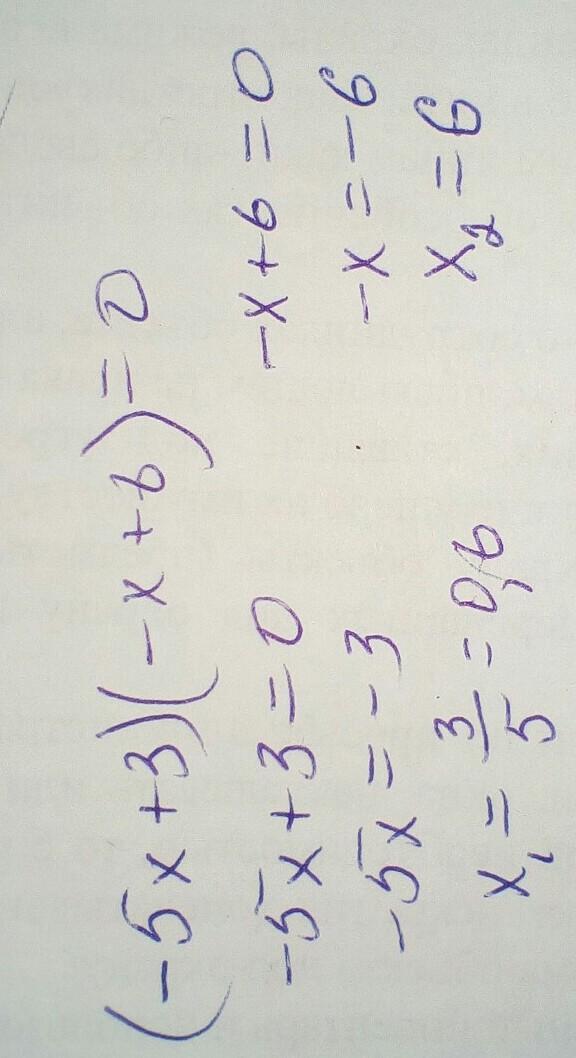 (-5x+3)(-x+6)=0
-5x+3=0 -x+6=0
-5x=-3 -x=-6
x₁=3/5=0,6 x₂=6